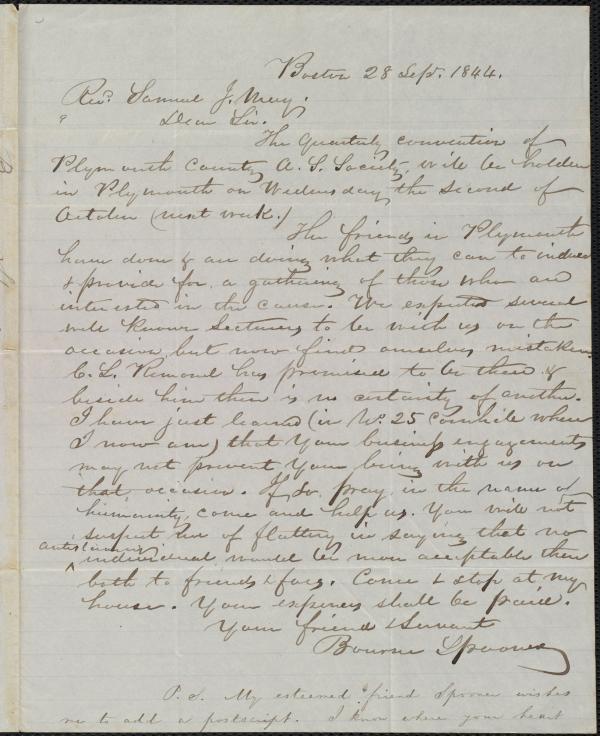 Boston 28 Sept. 1844.
Revd. Samuel J. May.
Dear Sir.
The Quarterly convention of
Plymouth County A. S. Society, will be holden
in Plymouth on Wednesday the second of
October (next week.)
The friends in Plymouth
have done & are doing what they can to induce
& provide for a gathering of those who are
interested in the cause. We expected several
well known Lecturers to be with us on the
occasion, but now find ourselves mistaken.
C. L. Remond has promised to be there &
beside him there is no certainty of another.
I have just learned (in No. 25 Cornhill where
I now am) that your business engagements
may not prevent your being with us on
that occasion. If so, pray, in the name of
humanity, come and help us. You will not
suspect me of flattery in saying that no
antislavery individual would be more acceptable there
both to friends & foes. Come & stop at my
house. Your expenses shall be paid.
Your friend & Servant
Bourne Spooner
P. S. My esteemed friend Spooner wishes
me to add a postscript. I know where your heart